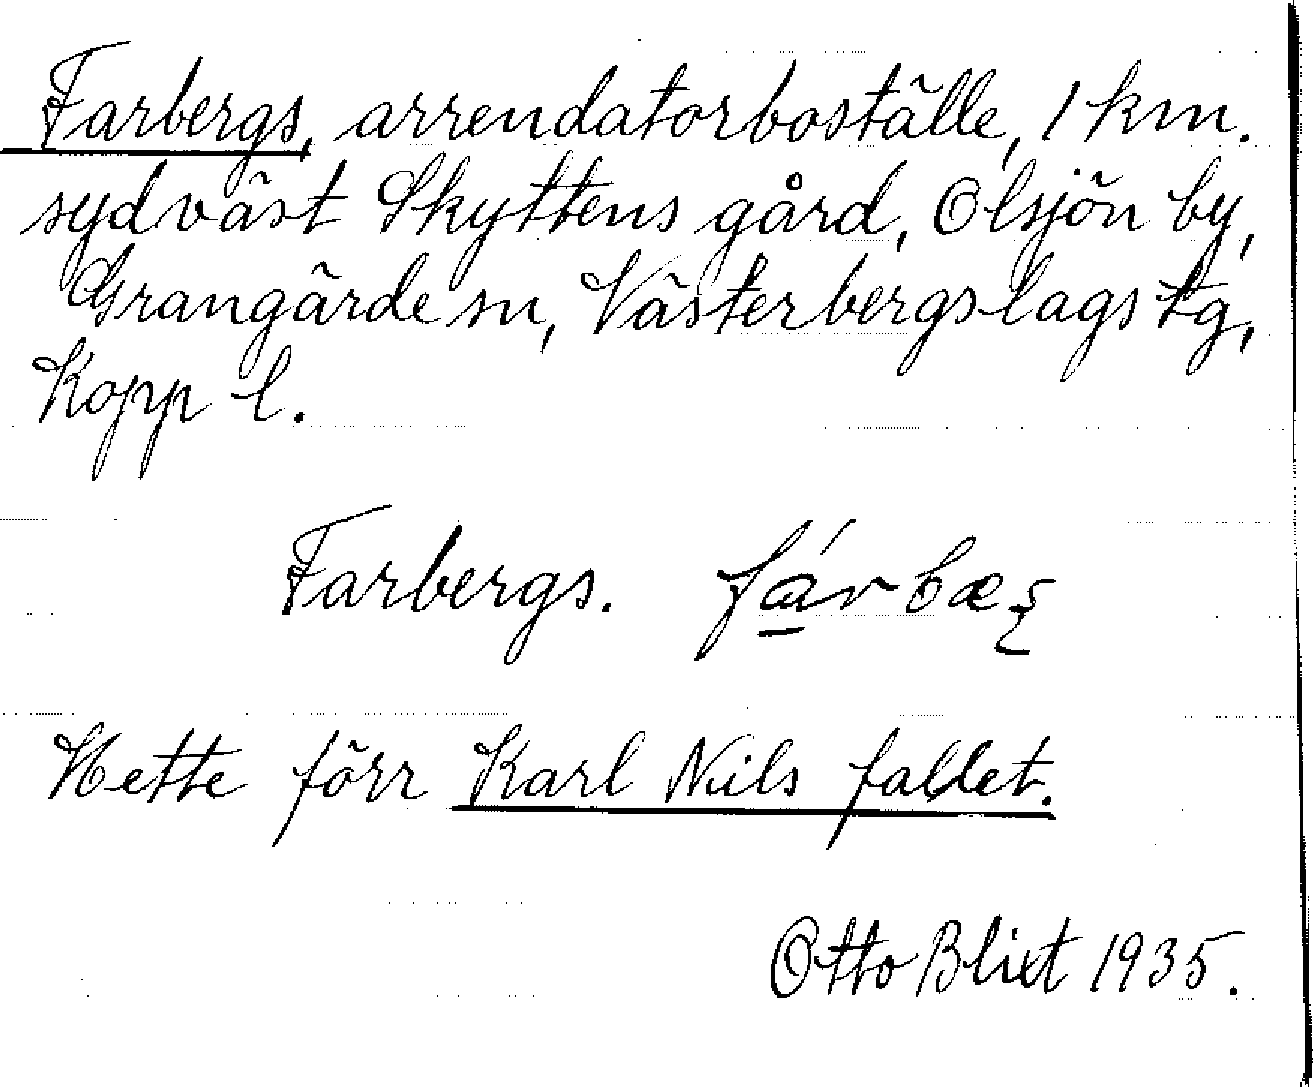 Farbergs, arrendatorboställe, 1 km.
sydväst Skyttens gård, Olsjön by,
Grangärde sn, Västerbergslags tg,
Kopp l.
Farbergs.
Hette förr Karl Nils fallet.
Otto Blixt 1935.